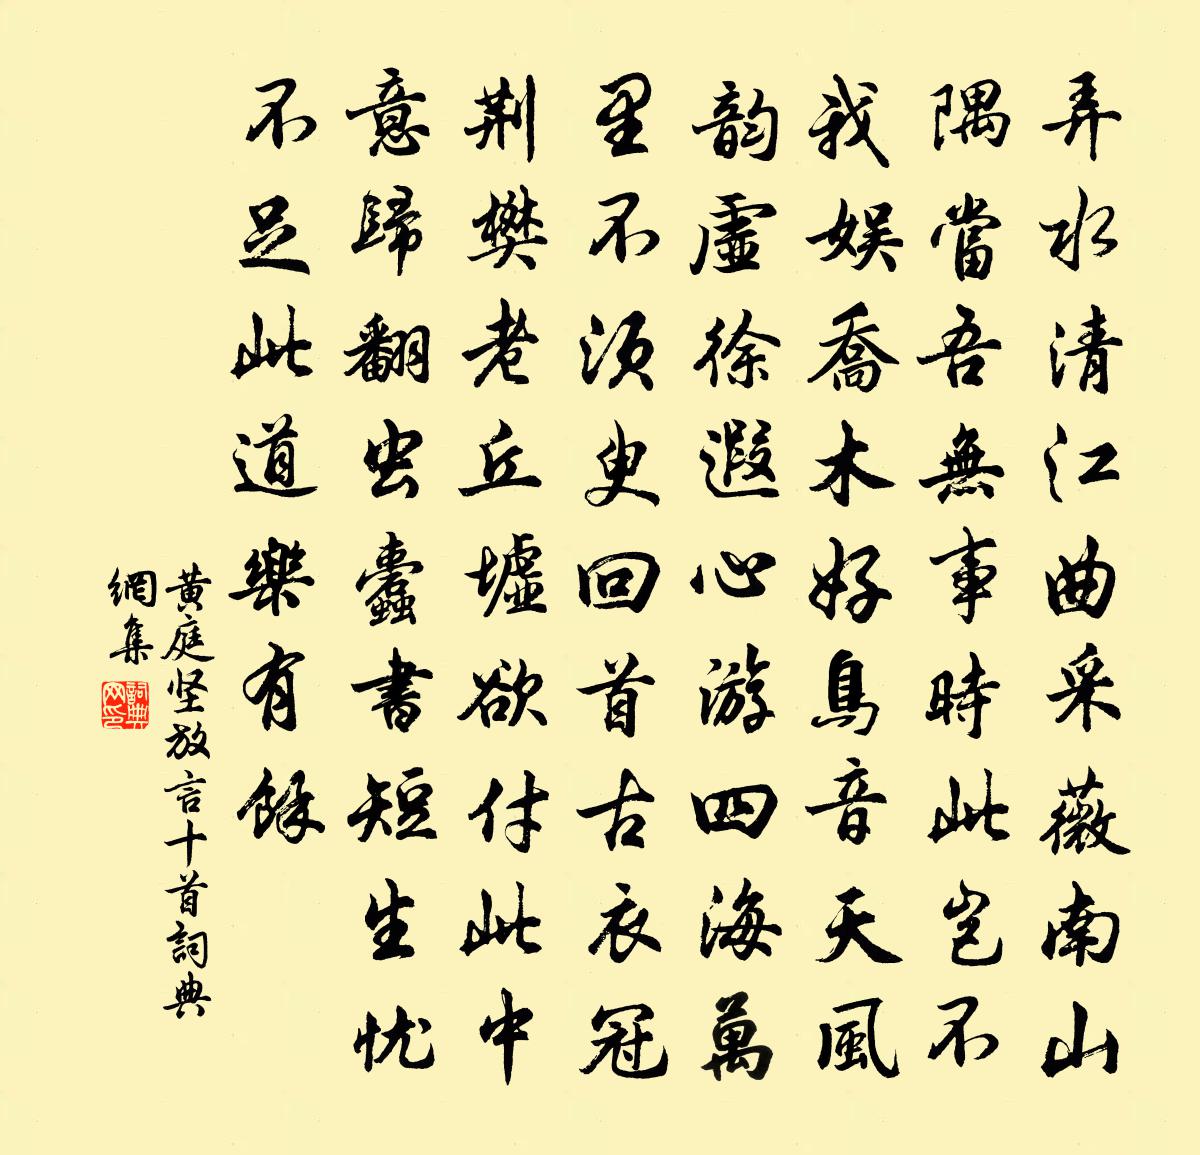 弄水清江曲采薇南山
隅當吾無事時此豈不
我娱喬木好鳥音天風
韵虛徐遐心游四海萬
里不須臾回首古衣冠
荆樊老丘墟欲付此中
意歸翻虫蠹書短生忧
不足此道樂有餘
黄庭坚放言十首詞典
網集
詞典
网印